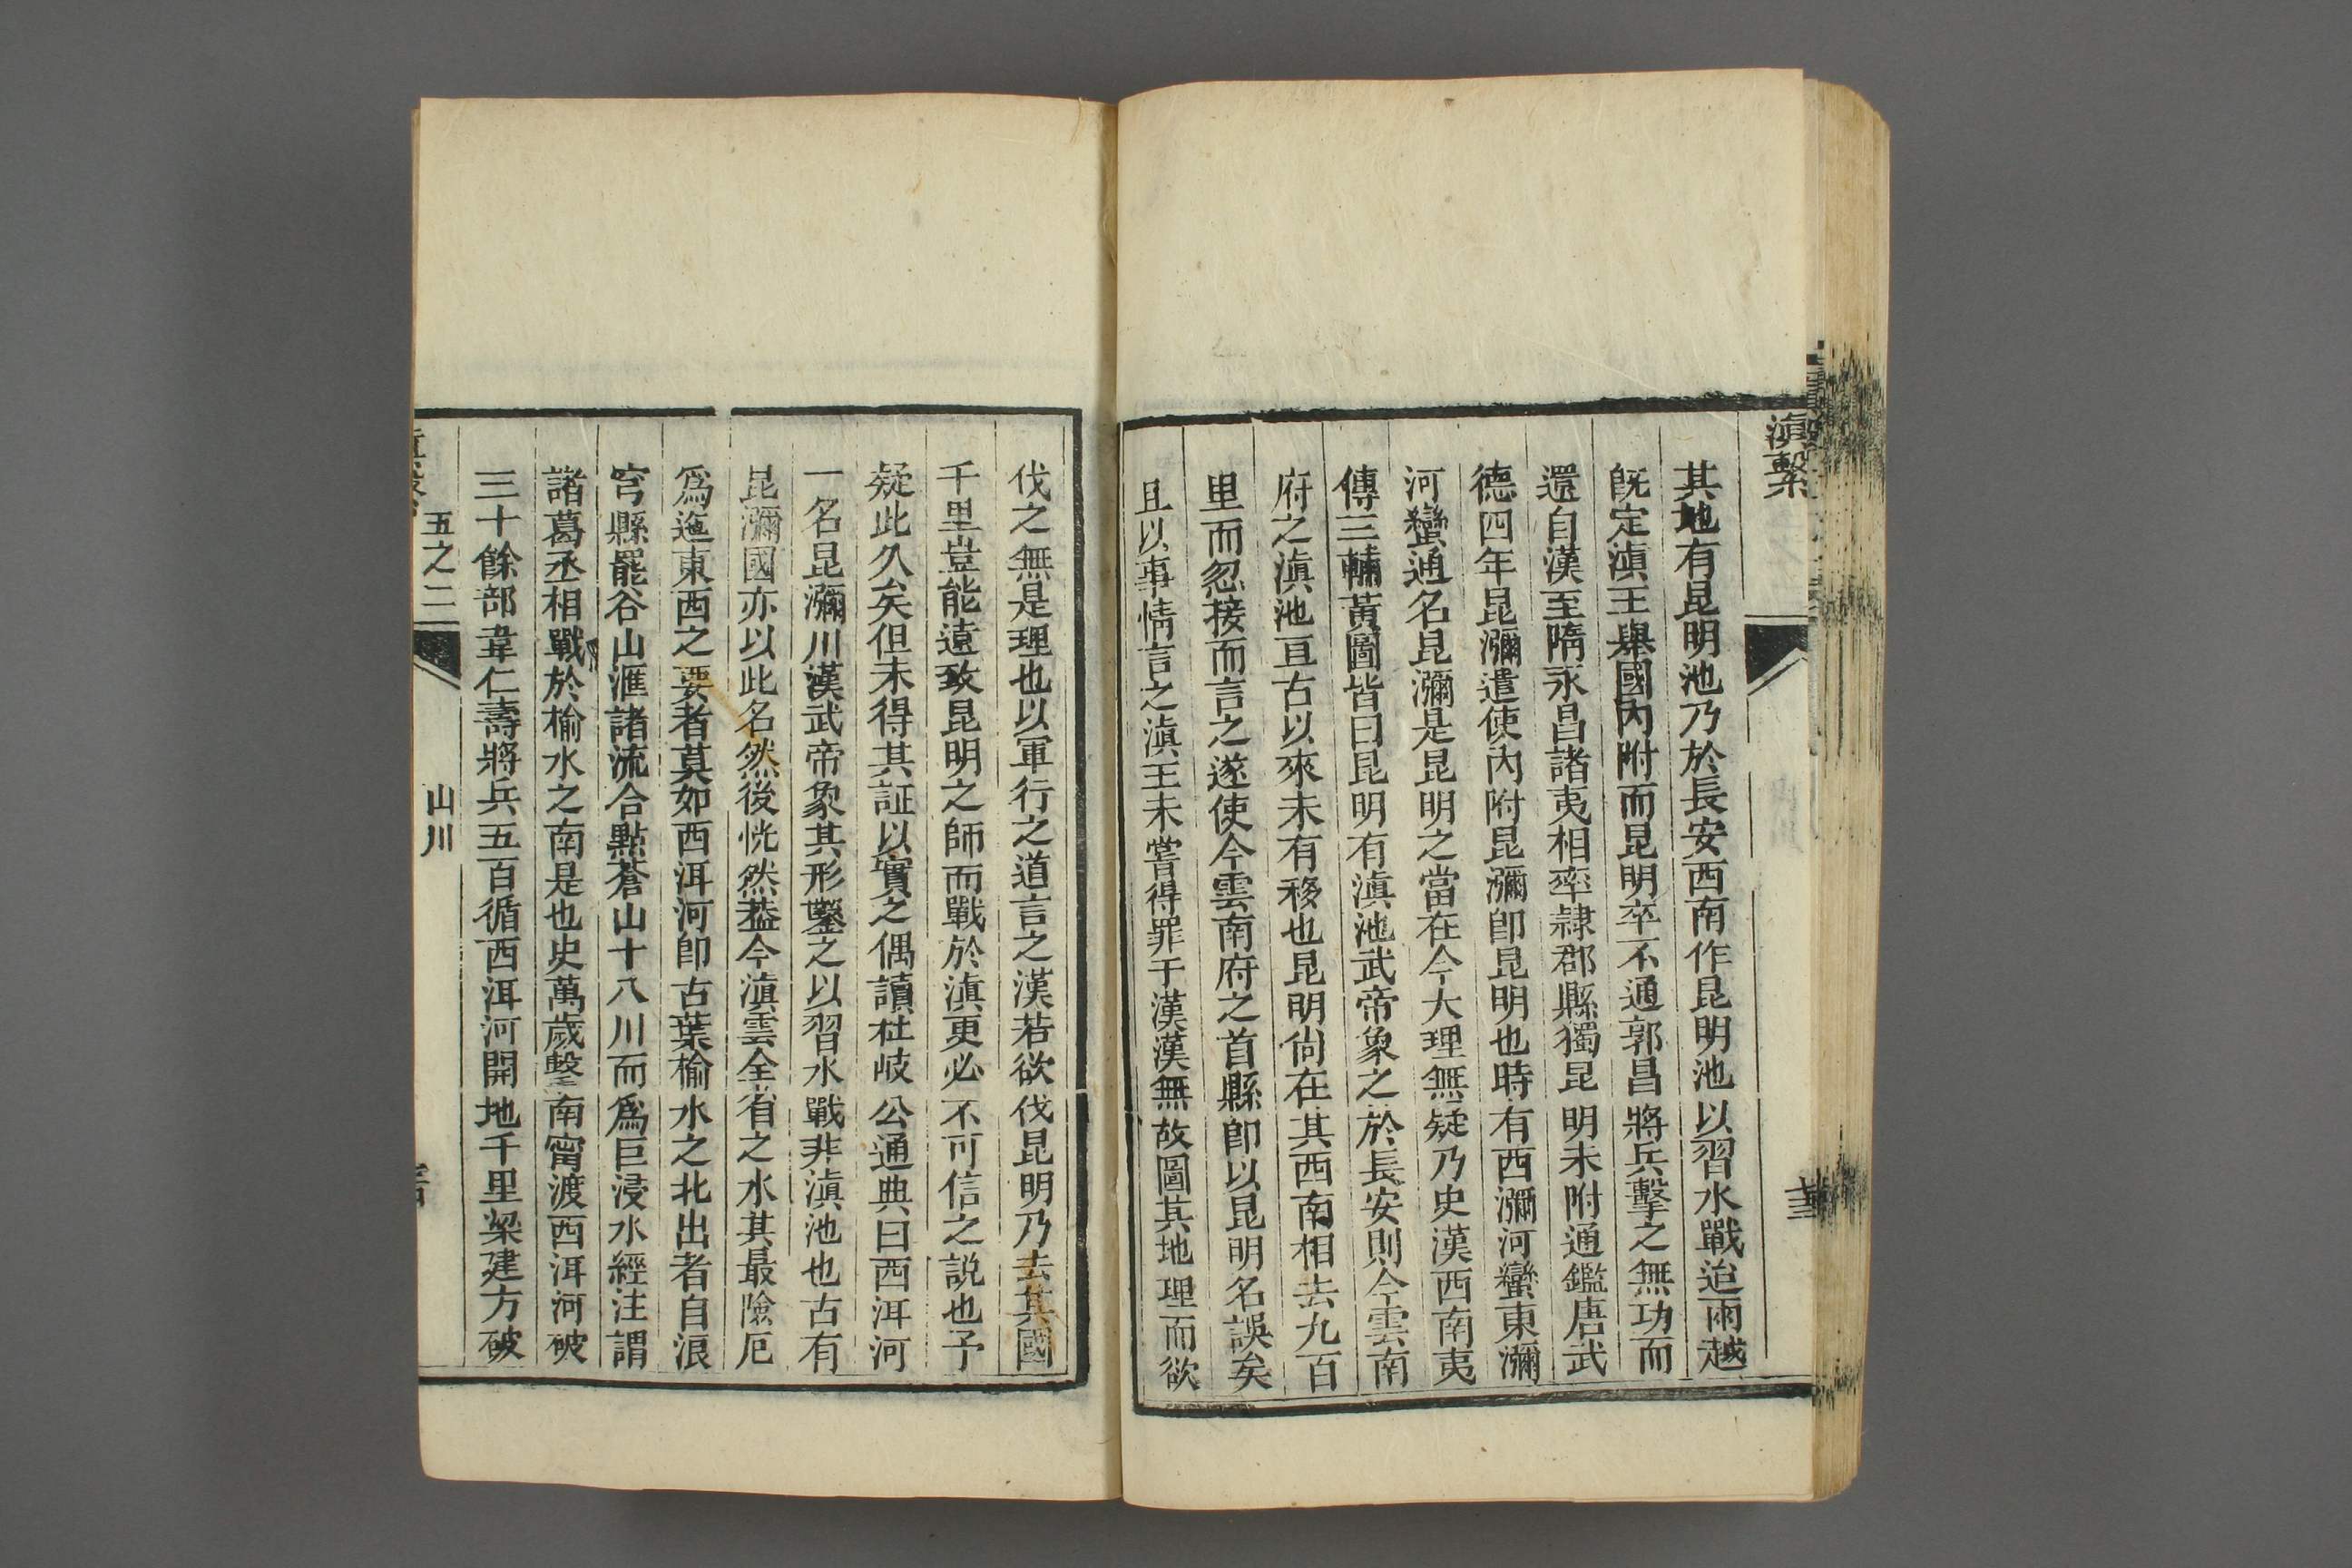 滇繫
其地有昆明池乃於長安西南作昆明池以習水戰迨兩越
旣定滇王舉國內附而昆明卒不通郭昌將兵擊之無功而
還自漢至隋永昌諸夷相率隷郡縣獨昆明未附通鑑唐武
德四年昆瀰遣使內附昆瀰卽昆明也時有西瀰河蠻東瀰
河蠻通名昆瀰是昆明之當在今大理無疑乃史漢西南夷
傳三輔黃圖皆曰昆明有滇池武帝象之於長安則今雲南
府之滇池亘古以來未有移也昆明尙在其西南相去九百
里而忽接而言之遂使今雲南府之首縣卽以昆明名誤矣
且以事情言之滇王未嘗得罪于漢漢無故圖其地理而欲
伐之無是理也以軍行之道言之漢若欲伐昆明乃去其國
千里豈能遠致昆明之師而戰於滇更必不可信之說也予
疑此久矣但未得其証以實之偶讀杜岐公通典曰西洱河
一名昆瀰川漢武帝象其形鑿之以習水戰非滇池也古有
昆瀰國亦以此名然後恍然葢今滇雲全省之水其最險厄
爲迤東西之要者莫如西洱河卽古葉榆水之北出者自浪
穹縣罷谷山滙諸流合點蒼山十八川而爲巨浸水經注謂
諸葛丞相戰於榆水之南是也史萬歲擊南甯渡西洱河破
三十餘部韋仁壽將兵五百循西洱河開地千里梁建方破
五之二
山川